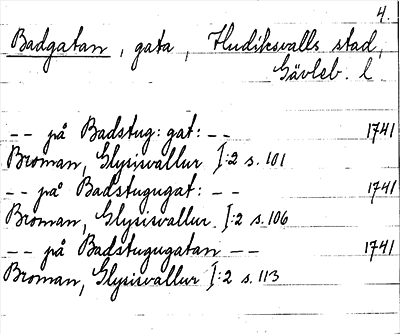 4.
Badgatan, gata, Hudiksvalls stad,
Gävleb. l.
-- på Badstug: gat: -- 1741
Broman, Glysisvallur I:2 s. 101
-- på Badstugugat: -- 1741
Broman, Glysisvallur. I:2 s. 106
-- på Badstugugatan -- 1741
Broman, Glysisvallur I:2 s. 113